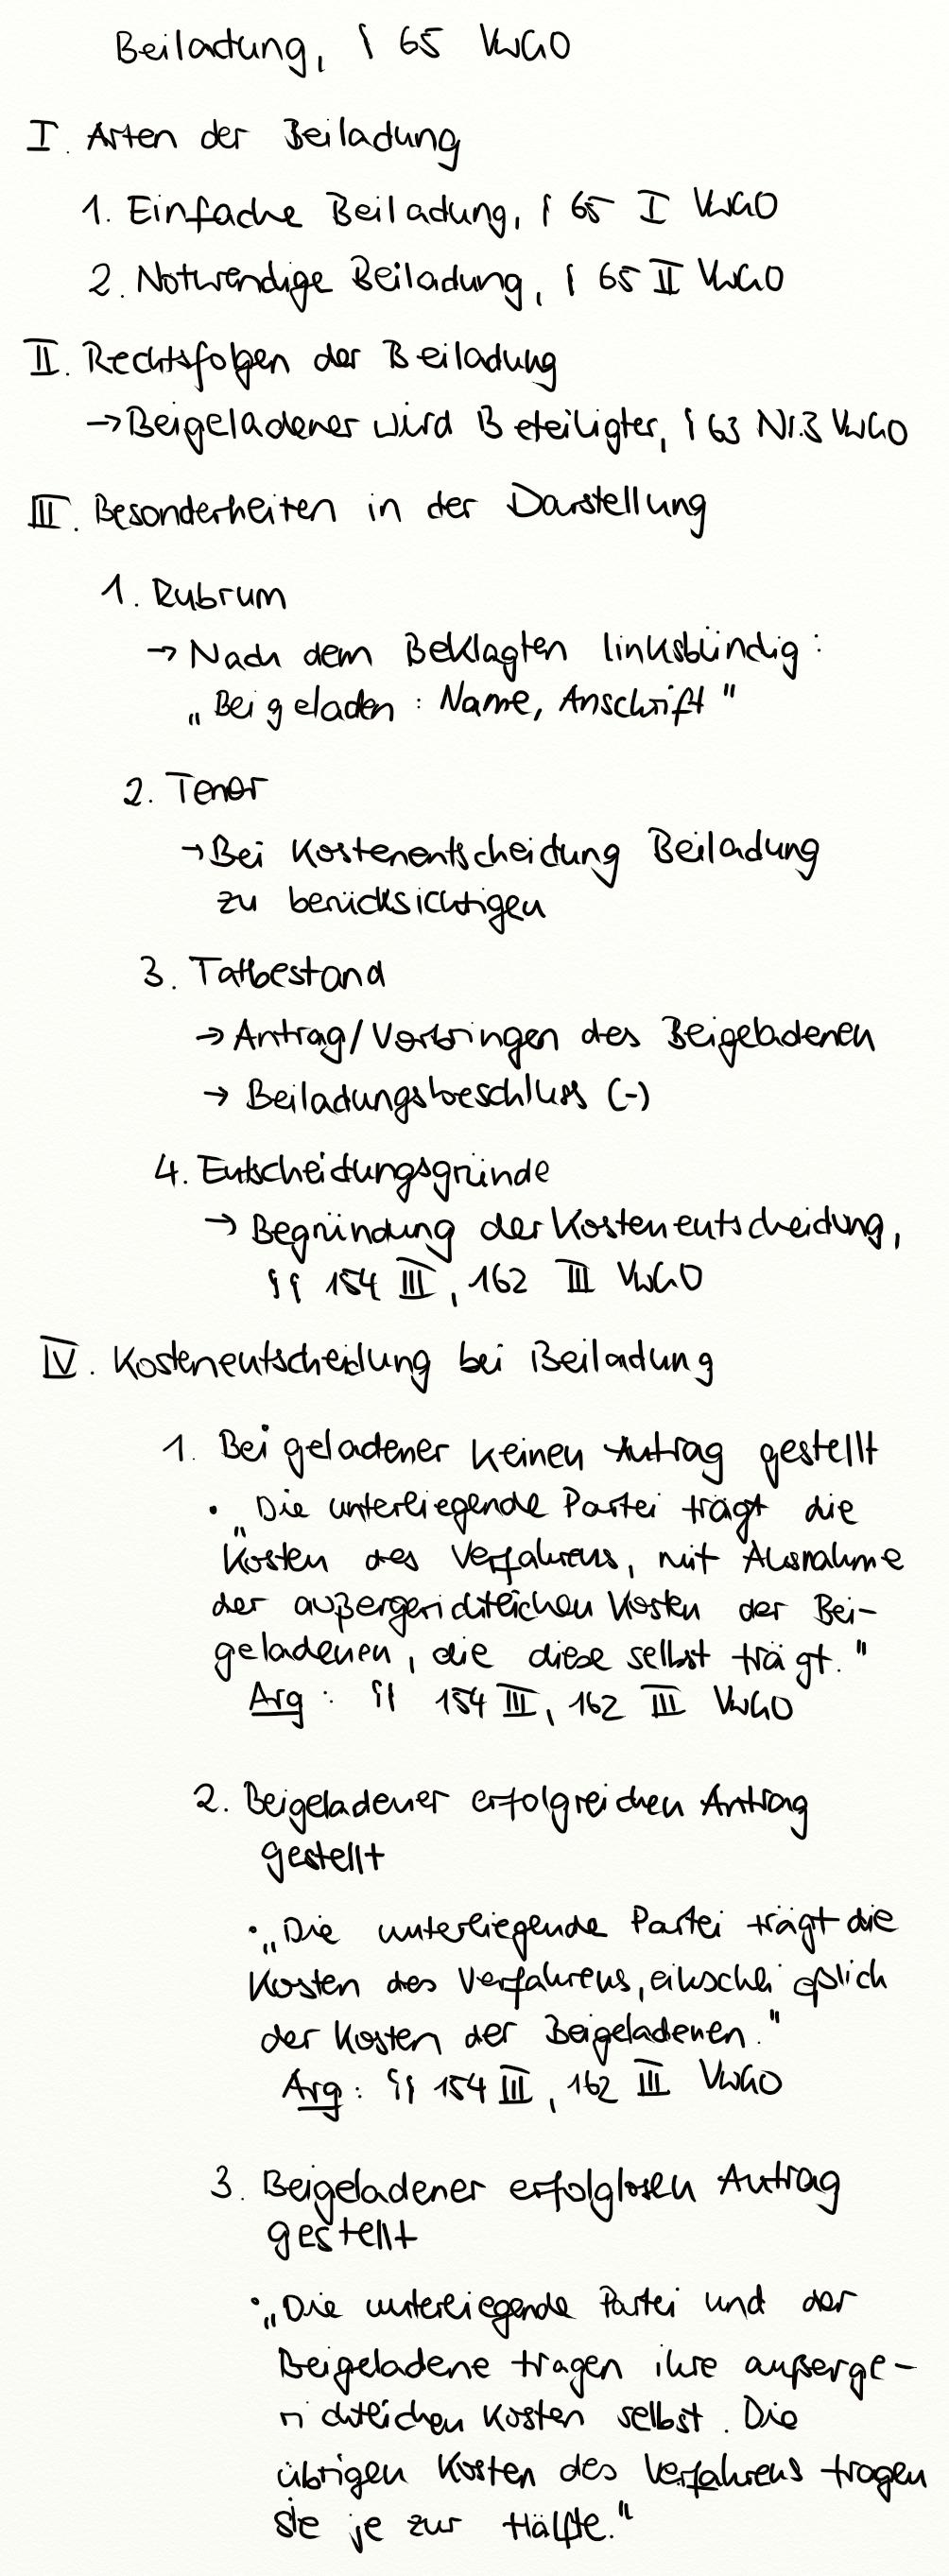 Beiladung, § 65 VwGO
I. Arten der Beiladung
1. Einfache Beiladung, § 65 I VwGO
2. Notwendige Beiladung, § 65 II VwGO
II. Rechtsfolgen der Beiladung
→ Beigeladener wird Beteiligter, § 63 Nr. 3 VwGO
III. Besonderheiten in der Darstellung
1. Rubrum
→ Nach dem Beklagten linksbündig:
„Beigeladen: Name, Anschrift"
2. Tenor
→ Bei Kostenentscheidung Beiladung
zu berücksichtigen
3. Tatbestand
→ Antrag/Vorbringen des Beigeladenen
→ Beiladungsbeschluss (-)
4. Entscheidungsgründe
→ Begründung der Kostenentscheidung,
§§ 154 III, 162 III VwGO
IV. Kostenentscheidung bei Beiladung
1. Beigeladener keinen Antrag gestellt
• „Die unterliegende Partei trägt die
Kosten des Verfahrens, mit Ausnahme
der außergerichtlichen Kosten der Bei-
geladenen, die diese selbst trägt."
Arg: §§ 154 III, 162 III VwGO
2. Beigeladener erfolgreichen Antrag
gestellt
• „Die unterliegende Partei trägt die
Kosten des Verfahrens, einschließlich
der Kosten der Beigeladenen."
Arg: §§ 154 III, 162 III VwGO
3. Beigeladener erfolglosen Antrag
gestellt
• „Die unterliegende Partei und der
Beigeladene tragen ihre außerge-
richtlichen Kosten selbst. Die
übrigen Kosten des Verfahrens tragen
sie je zur Hälfte."